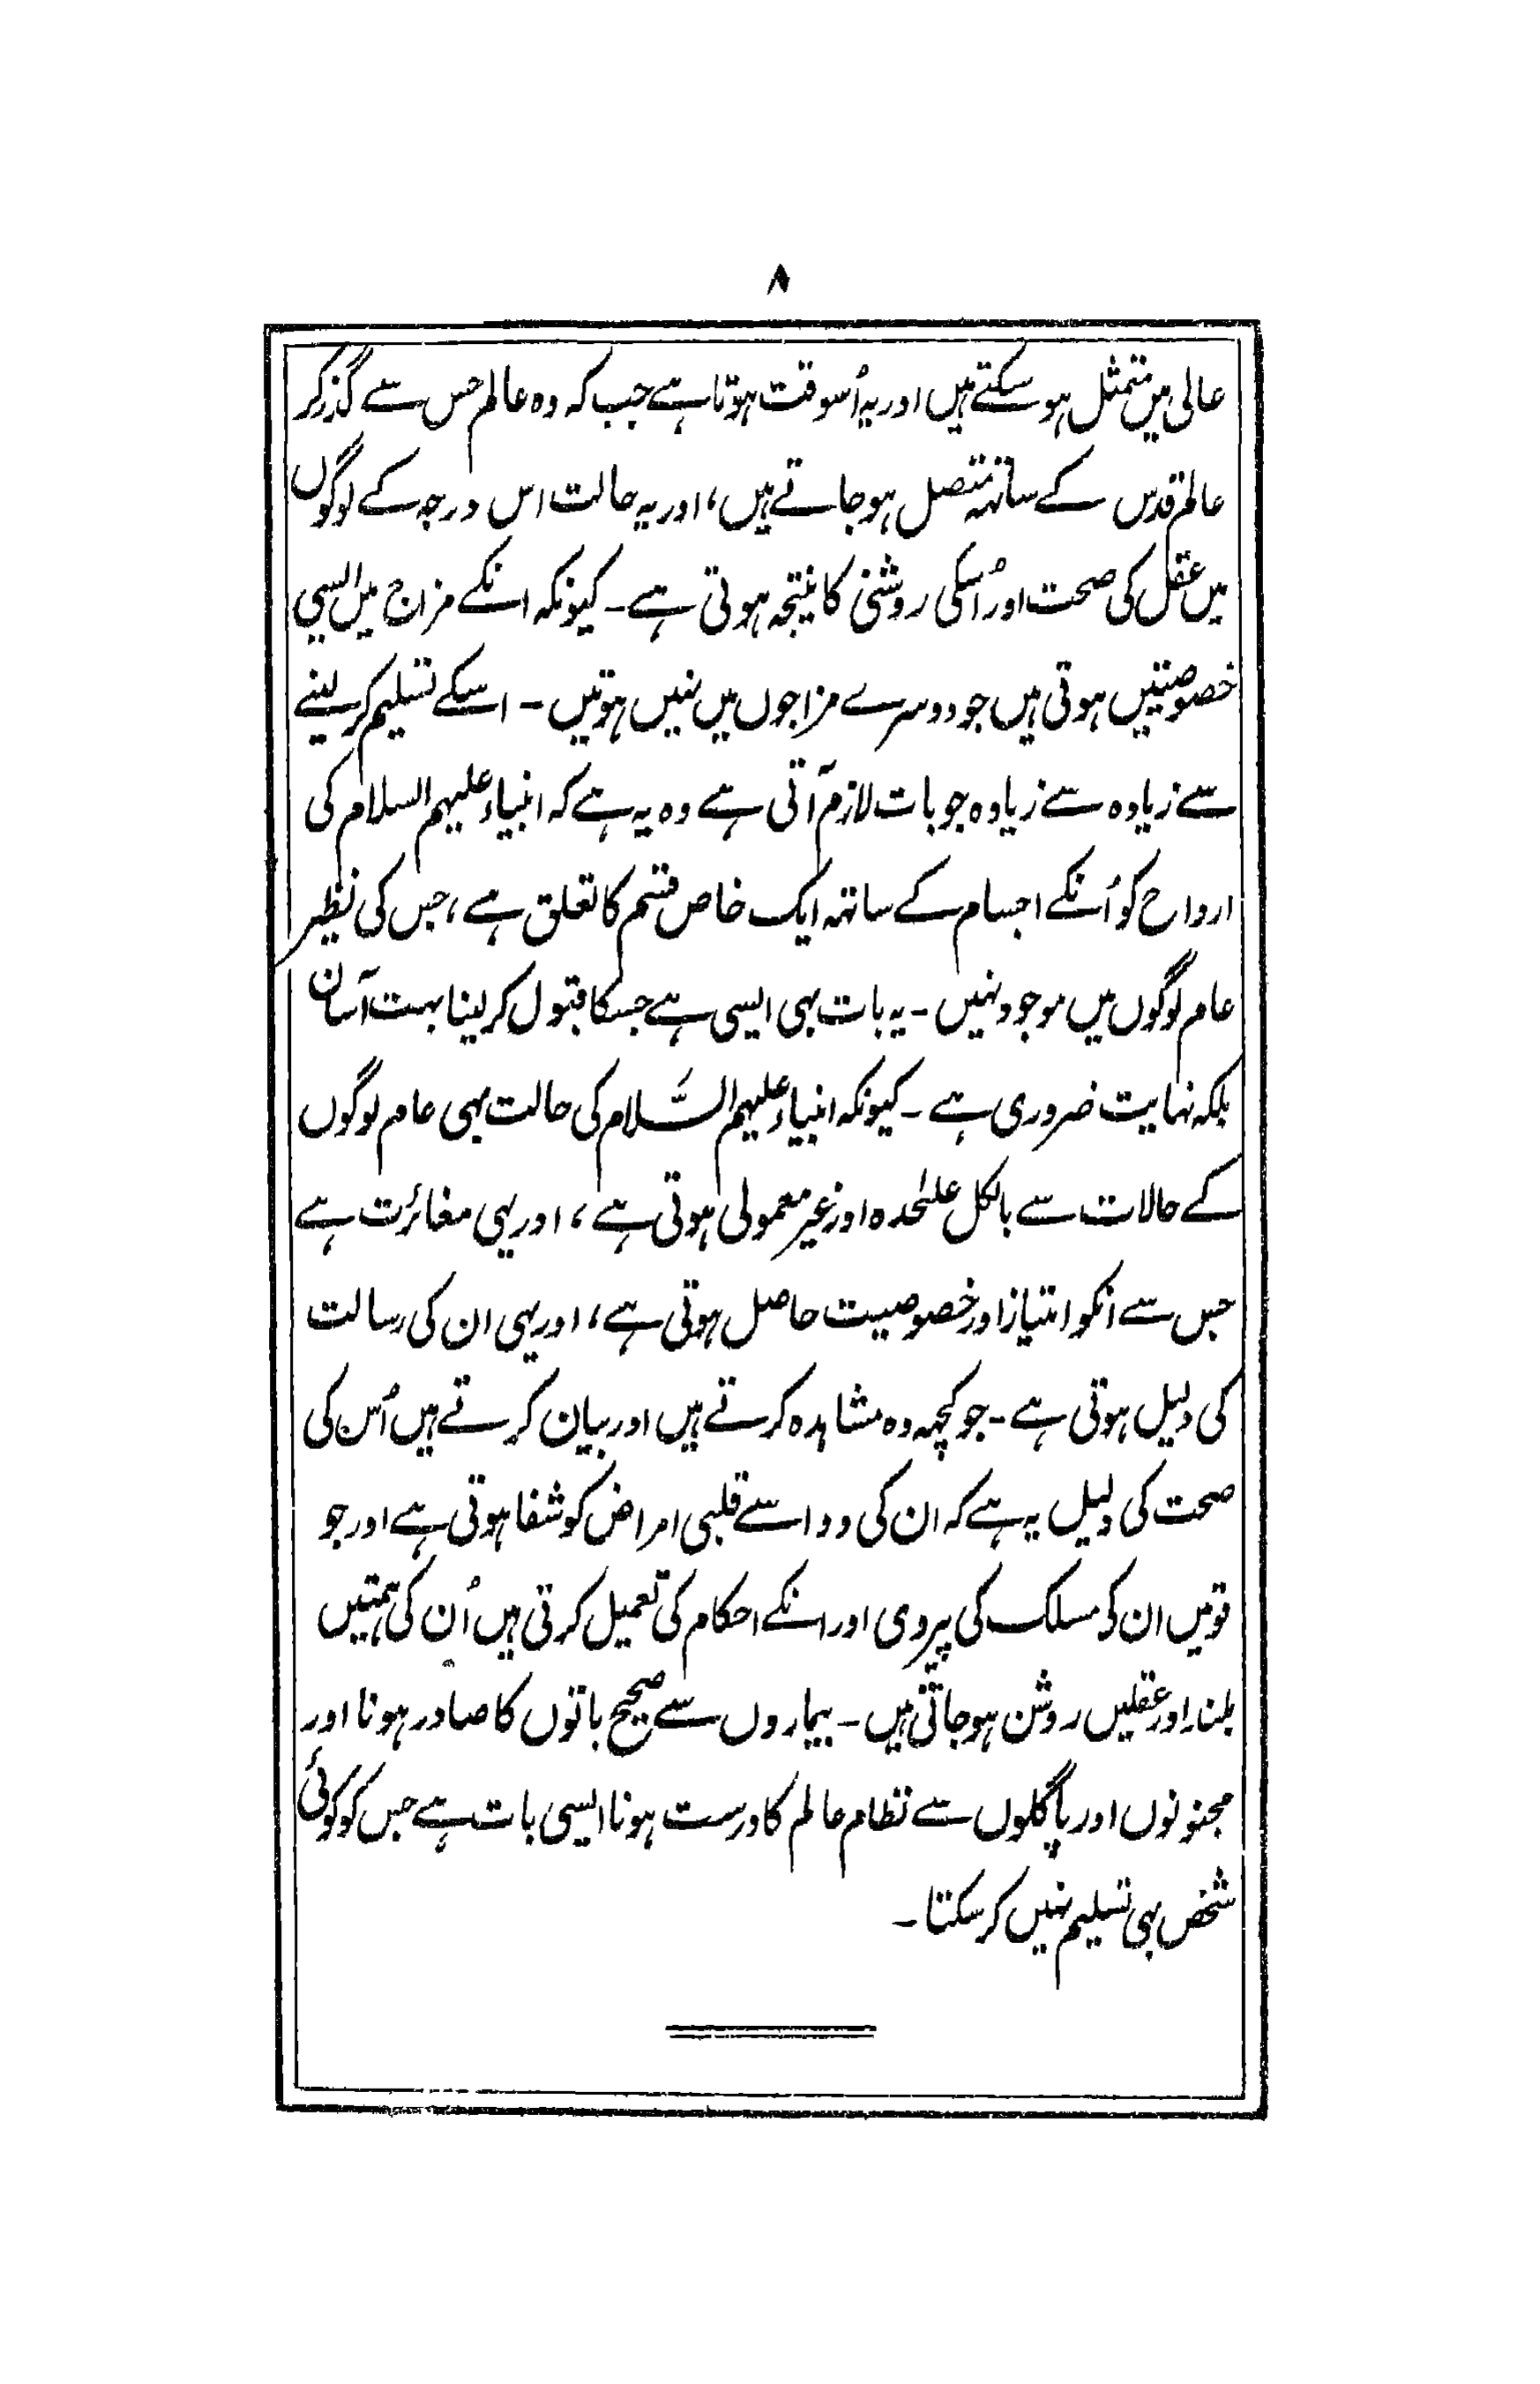 ۸
عالی میں متمثل ہو سکتے ہیں اور یہ اُسوقت ہوتا ہے جب کہ وہ عالم حس سے گذر کر
عالم قدس کے ساتھہ متصل ہو جاتے ہیں، اور یہ حالت اس درجہ کے لوگوں
میں عقل کی صحت اور اُسکی روشنی کا نتیجہ ہوتی ہے۔ کیونکہ انکے مزاج میں ایسی
خصوصیتیں ہوتی ہیں جو دوسرے مزاجوں میں نہیں ہوتیں۔ اسکے تسلیم کر لینے
سے زیادہ سے زیادہ جو بات لازم آتی ہے وہ یہ ہے کہ انبیاء علیہم السلام کی
ارواح کو اُنکے اجسام کے ساتھہ ایک خاص قسم کا تعلق ہے، جس کی نظیر
عام لوگوں میں موجود نہیں۔ یہ بات بہی ایسی ہے جسکا قبول کر لینا بہت آسان
بلکہ نہایت ضروری ہے۔ کیونکہ انبیاء علیہم السَّلام کی حالت بہی عام لوگوں
کے حالات سے بالکل علیٰحدہ اور غیر معمولی ہوتی ہے، اور یہی مغائرت ہے
جس سے انکو امتیاز اور خصوصیت حاصل ہوتی ہے، اور یہی ان کی رسالت
کی دلیل ہوتی ہے۔ جو کچہہ وہ مشاہدہ کرتے ہیں اور بیان کرتے ہیں اُس کی
صحت کی دلیل یہ ہے کہ ان کی دوا سے قلبی امراض کو شفا ہوتی ہے اور جو
قومیں ان کی مسلک کی پیروی اور انکے احکام کی تعمیل کرتی ہیں اُن کی ہمتیں
بلند اور عقلیں روشن ہو جاتی ہیں۔ بیماروں سے صحیح باتوں کا صادر ہونا اور
مجنونوں اور پاگلوں سے نظام عالم کا درست ہونا ایسی بات ہے جس کو کوئی
شخص بہی تسلیم نہیں کر سکتا۔